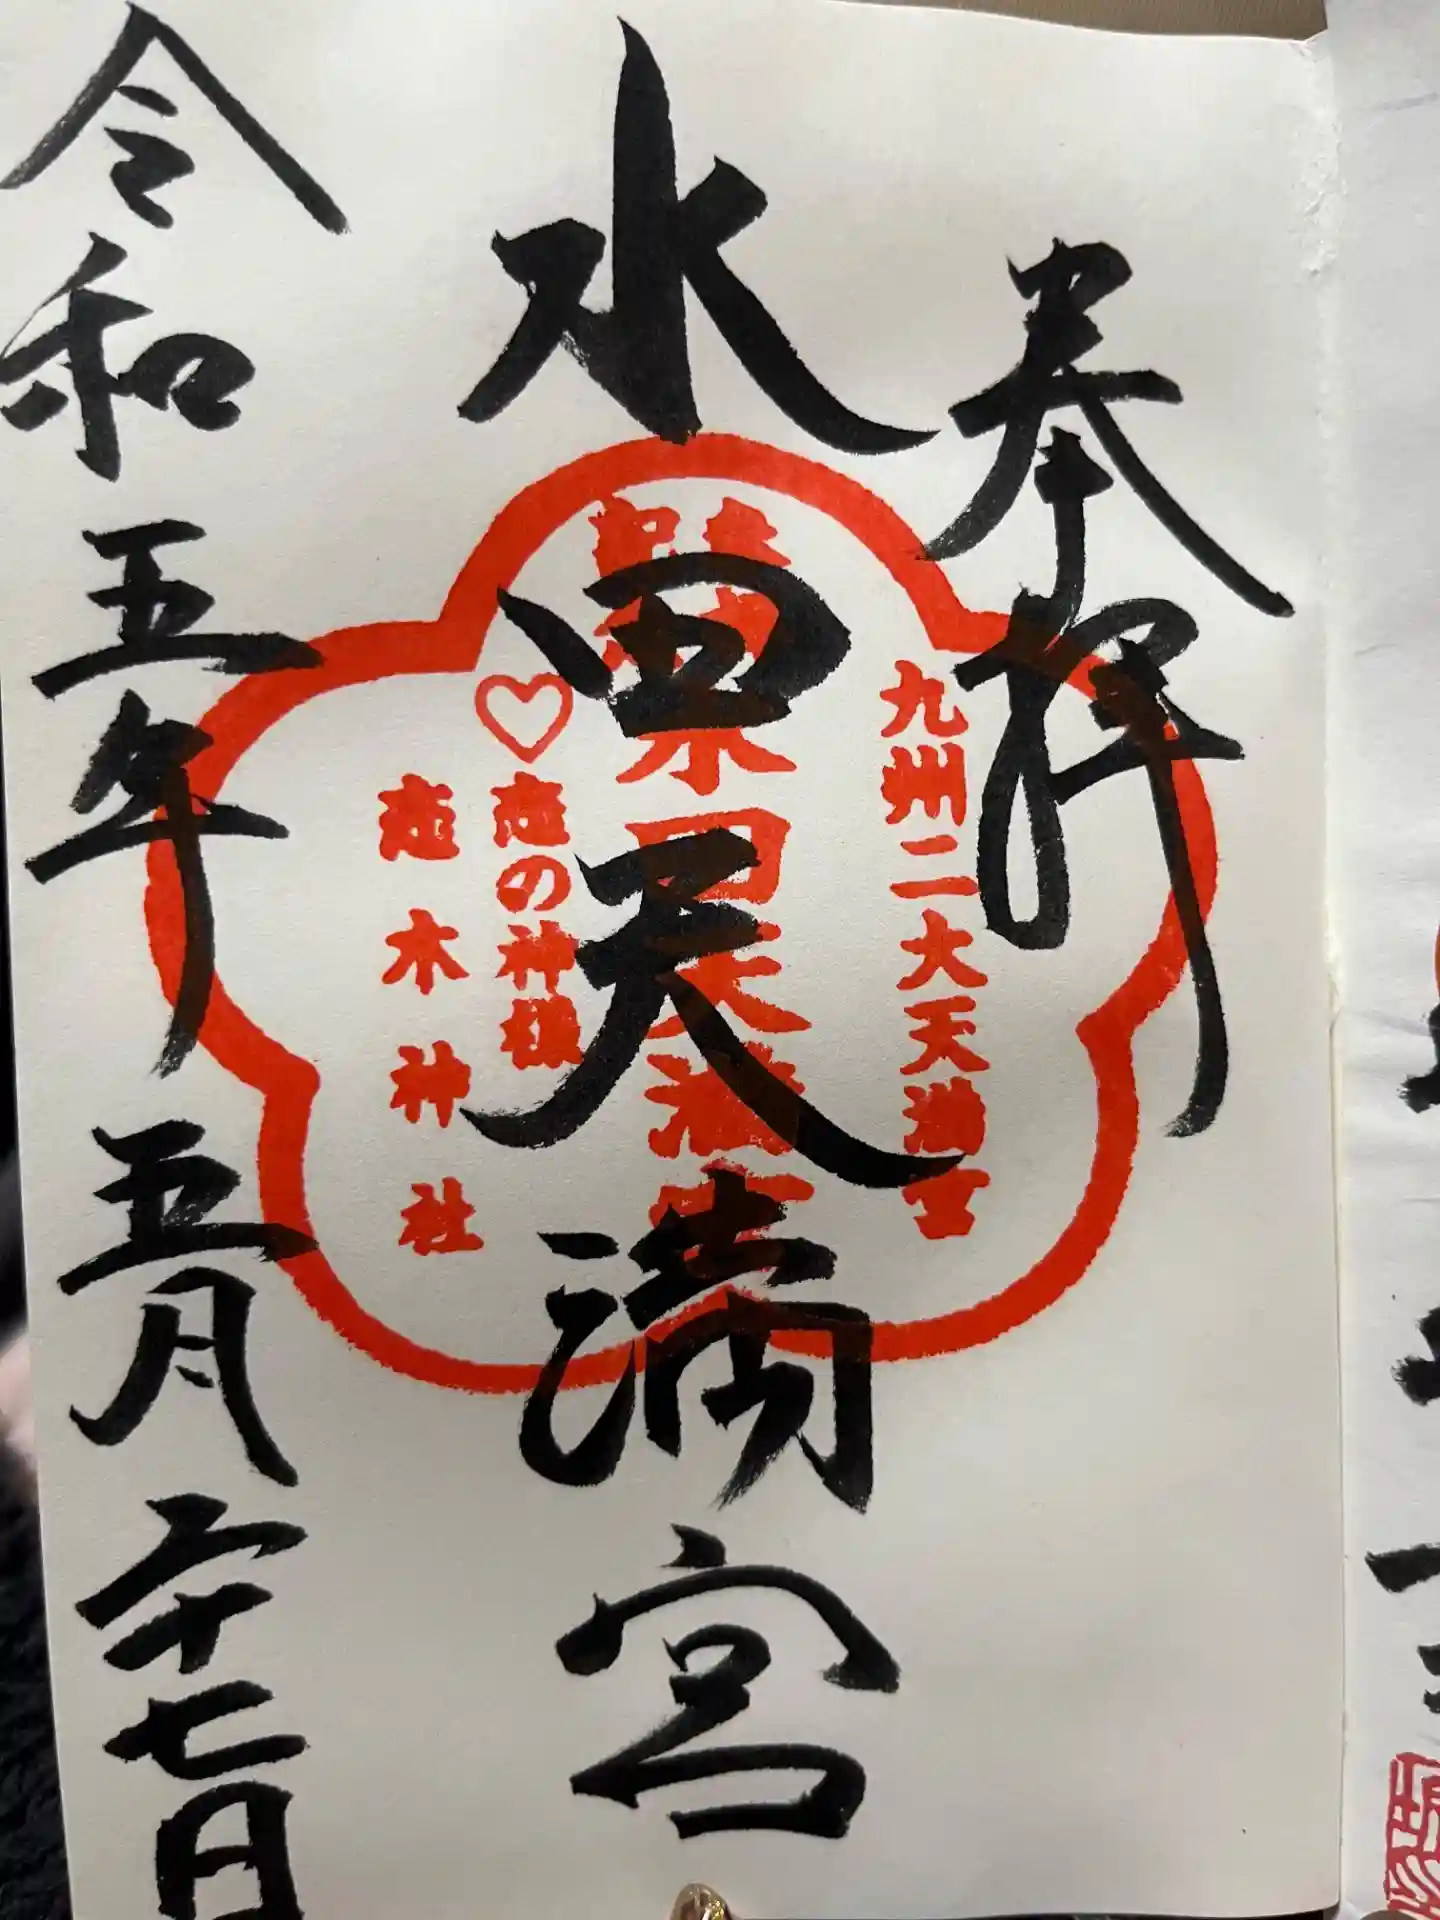 奉拝
九州二大天満宮
水田天満宮
水田天満宮
恋の神様
恋木神社
令和五年五月二十七日